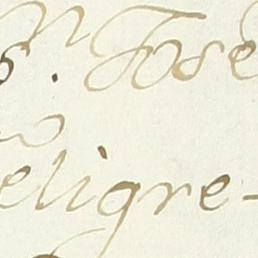 s. Jose
eligre-